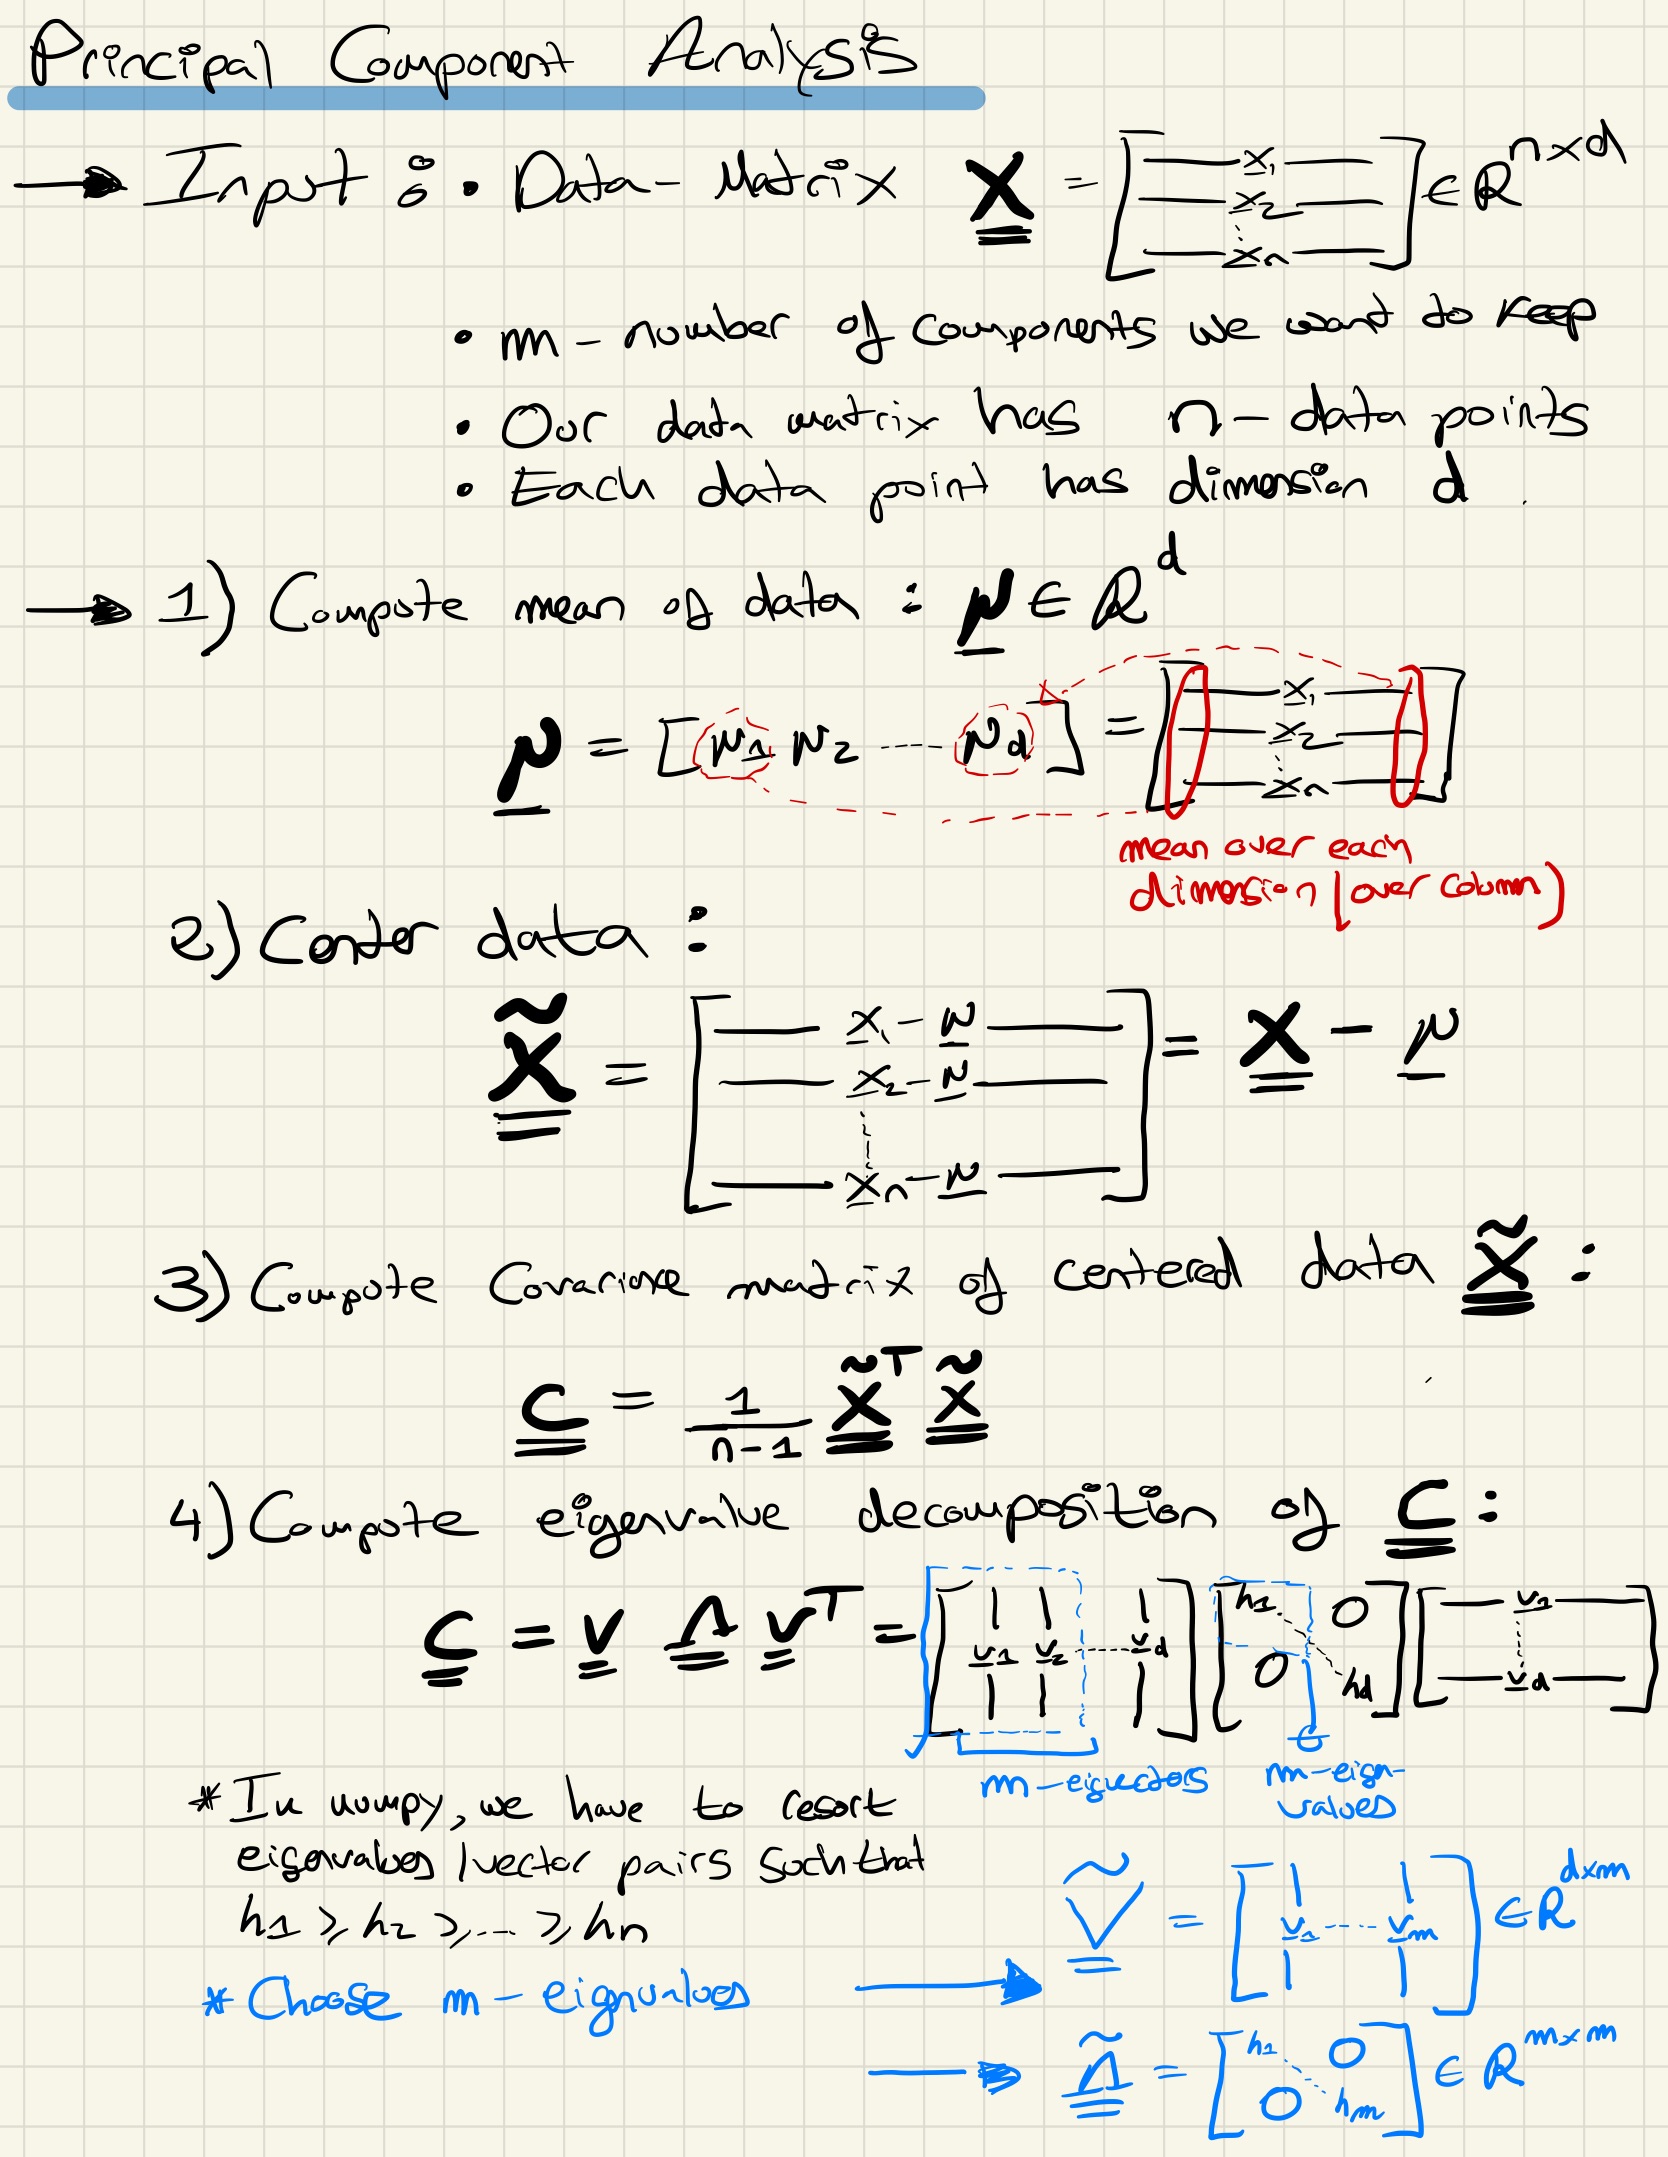 Principal Component Analysis
→ Input : • Data-Matrix X = [ — x₁ — — x₂ — ⋮ — xₙ — ] ∈ ℝ^{n×d}
• m - number of components we want to keep
• Our data matrix has n - data points
• Each data point has dimension d
→ 1) Compute mean of data : μ ∈ ℝ^d
μ = [ μ₁ μ₂ ---- μ_d ] = [ — x₁ — — x₂ — ⋮ — xₙ — ]
mean over each
dimension (over column)
2) Center data :
X̃ = [ — x₁ - μ — — x₂ - μ — ⋮ — xₙ - μ — ] = X - μ
3) Compute Covariance matrix of centered data X̃ :
C = 1/(n-1) X̃ᵀ X̃
4) Compute eigenvalue decomposition of C :
C = V Λ Vᵀ = [ v₁ v₂ ---- v_d ] [ λ₁ 0 0 λ_d ] [ — v₁ — ⋮ — v_d — ]
m - eigvectors
m - eigen-
values
* In numpy, we have to resort
eigenvalues / vector pairs such that
λ₁ ≥ λ₂ ≥ ---- ≥ λₙ
* Choose m - eignvalues
→ Ṽ = [ v₁ ---- v_m ] ∈ ℝ^{d×m}
→ Λ̃ = [ λ₁ 0 0 λ_m ] ∈ ℝ^{m×m}